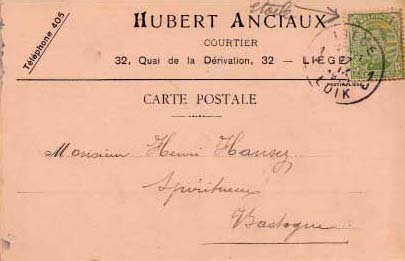 Téléphone 405
HUBERT ANCIAUX
COURTIER
32, Quai de la Dérivation, 32 — LIEGE
LIEGE
LUIK
CARTE POSTALE
Monsieur Henri Hansez
Spiritueux
Bastogne